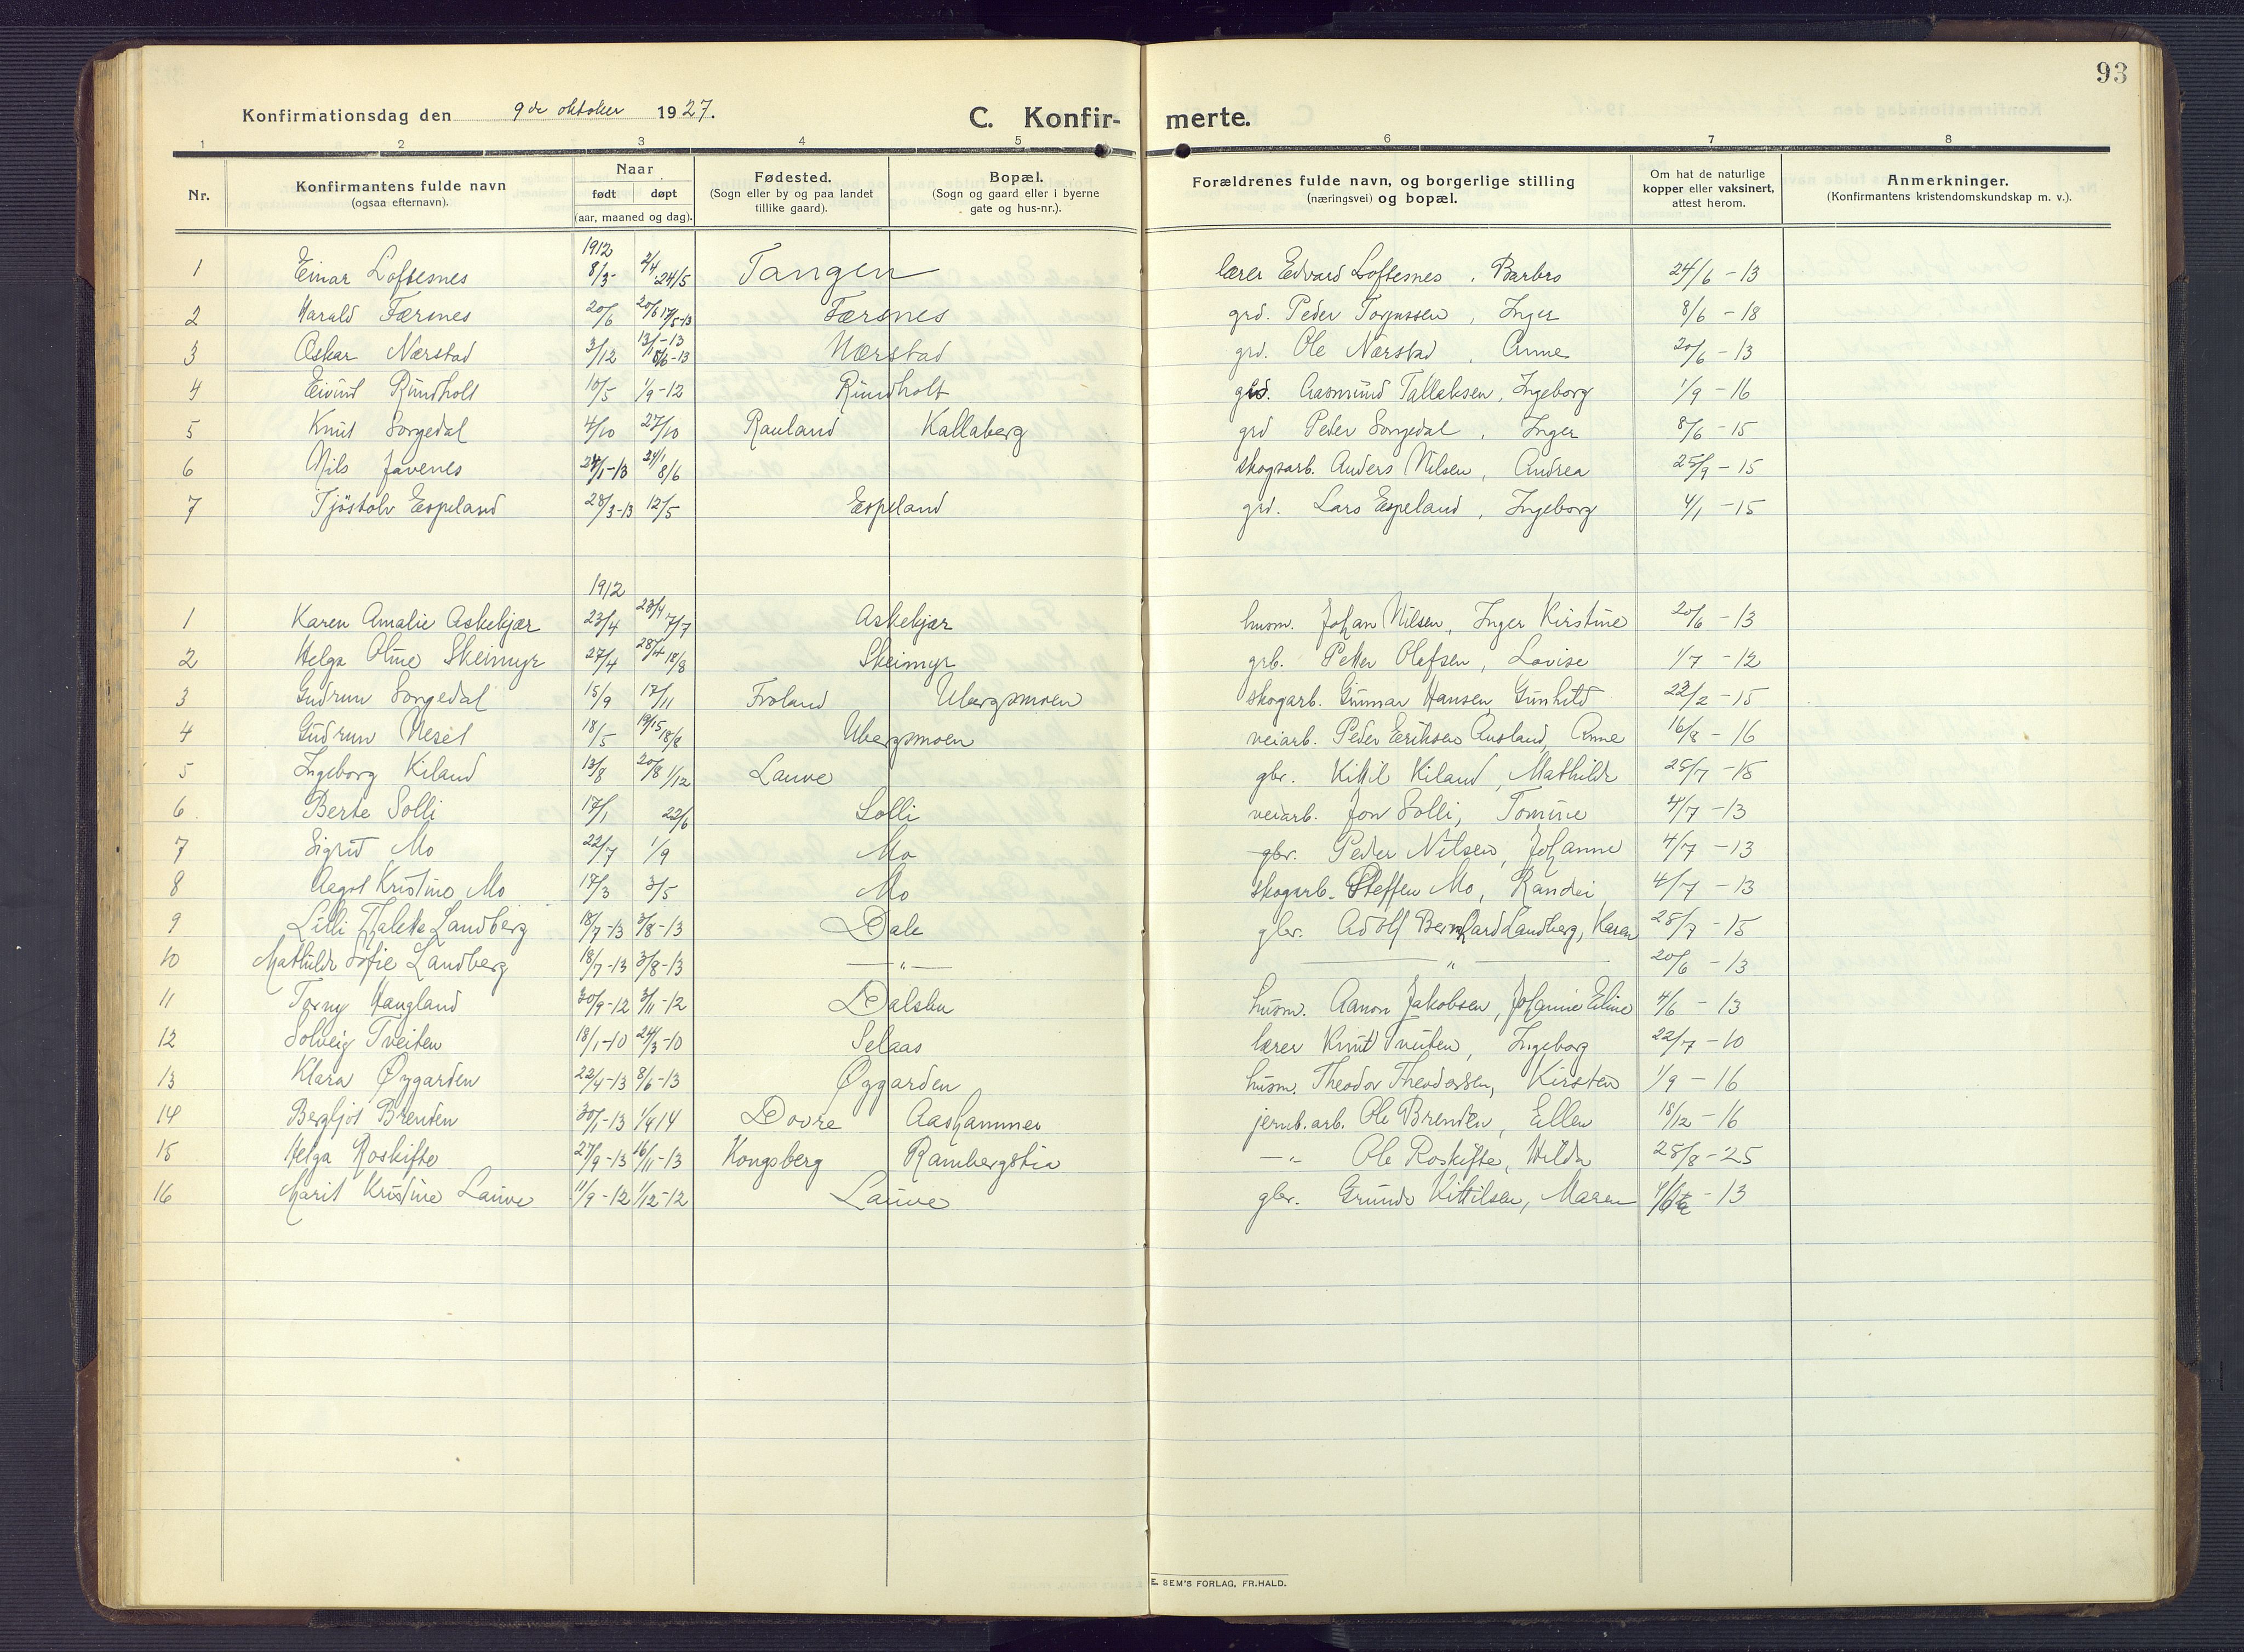 93
Konfirmationsdag den 9de oktober 1927. C. Konfir- merte.
1 2 3 4 5 6 7 8
Nr. Konfirmantens fulde navn (ogsaa efternavn). Naar født døpt (aar, maaned og dag). Fødested. (Sogn eller by og paa landet tillike gaard). Bopæl. (Sogn og gaard eller i byerne gate og hus-nr.). Forældrenes fulde navn, og borgerlige stilling (næringsvei) og bopæl. Om hat de naturlige kopper eller vaksinert, attest herom. Anmerkninger. (Konfirmantens kristendomskundskap m. v.).
1912
1 Einar Loftesnes 8/3- 2/4 24/5 Tangen lærer Edvard Loftesnes, Barbro 24/6 - 13
2 Harald Færsnes 20/6 20/6 17/5-13 Færsnes grd. Peder Torjussen, Inger 8/6 - 18
3 Oskar Nærstad 3/12 13/1-13 8/6-13 Nærstad grd. Ole Nærstad, Anne 20/6 - 13
4 Eivind Rundholt 10/5 1/9-12 Rundholt Aasmund Tallaksen, Ingeborg 1/9 - 16
5 Knut Songedal 4/10 27/10 Rauland Kallaberg grd Peder Songedal, Inger 8/6 - 15
6 Nils Javenes 24/1-13 24/1 8/6 skogsarb. Anders Nilsen, Andrea 25/9 - 15
7 Tjöstolv Espeland 28/3-13 12/5 Espeland grd. Lars Espeland, Ingeborg 4/1 - 15
1912
1 Karen Amalie Askekjær 23/4 23/4 7/7 Askekjær husm. Johan Nilsen, Inger Kirstine 20/6 - 13
2 Helga Oline Skeimyr 27/4 28/4 18/8 Skeimyr grb. Petter Olefsen, Lovise 1/7 - 12
3 Gudrun Songedal 15/9 17/11 Froland Ubergsmoen skogarb. Gunnar Hansen, Gunhild 22/2 - 15
4 Gudrun Neset 18/5 19/5 18/8 Ubergsmoen veiarb. Peder Eriksen Ausland, Anne 16/8 - 16
5 Ingeborg Kiland 13/8 20/8 1/12 Lauve gbr. Kittil Kiland, Mathilde 25/7 - 15
6 Berte Solli 17/1 22/6 Solli veiarb. Jon Solli, Tomine 4/7 - 13
7 Sigrid Mo 22/7 1/9 Mo gbr. Peder Nilsen, Johanne 4/7 - 13
8 Aagot Kristine Mo 17/3 3/5 Mo skogarb. Steffen Mo, Randei 4/7 - 13
9 Lilli Thalete Landberg 18/7-13 3/8-13 Dale gbr. Adolf Bernhard Landberg, Karen 28/7 - 15
10 Mathilde Sofie Landberg 18/7-13 3/8-13 —"— —"— 20/6 - 13
11 Torny Haugland 30/9-12 3/11-12 Dalsbu husm. Aanon Jakobsen, Johanne Eline 4/6 - 13
12 Solveig Tveiten 18/1-10 24/3-10 Selaas lærer Knut Tveiten, Ingeborg 22/7 - 10
13 Klara Øygarden 22/4-13 8/6-13 Øygarden husm. Theodor Theodorsen, Kirsten 1/9 - 16
14 Bergljot Brenden 30/1-13 1/4 14 Dovre Aashammer jernb.arb. Ole Brenden, Ellen 18/12 - 16
15 Helga Roskifte 27/9-13 16/11-13 Kongsberg Rambergstia —"— Ole Roskifte, Hilda 28/8 - 25
16 Marit Kristine Lauve 11/9-12 1/12-12 Lauve gbr. Grunde Kittilsen, Maren - 13
E. SEM'S FORLAG, FR.HALD.